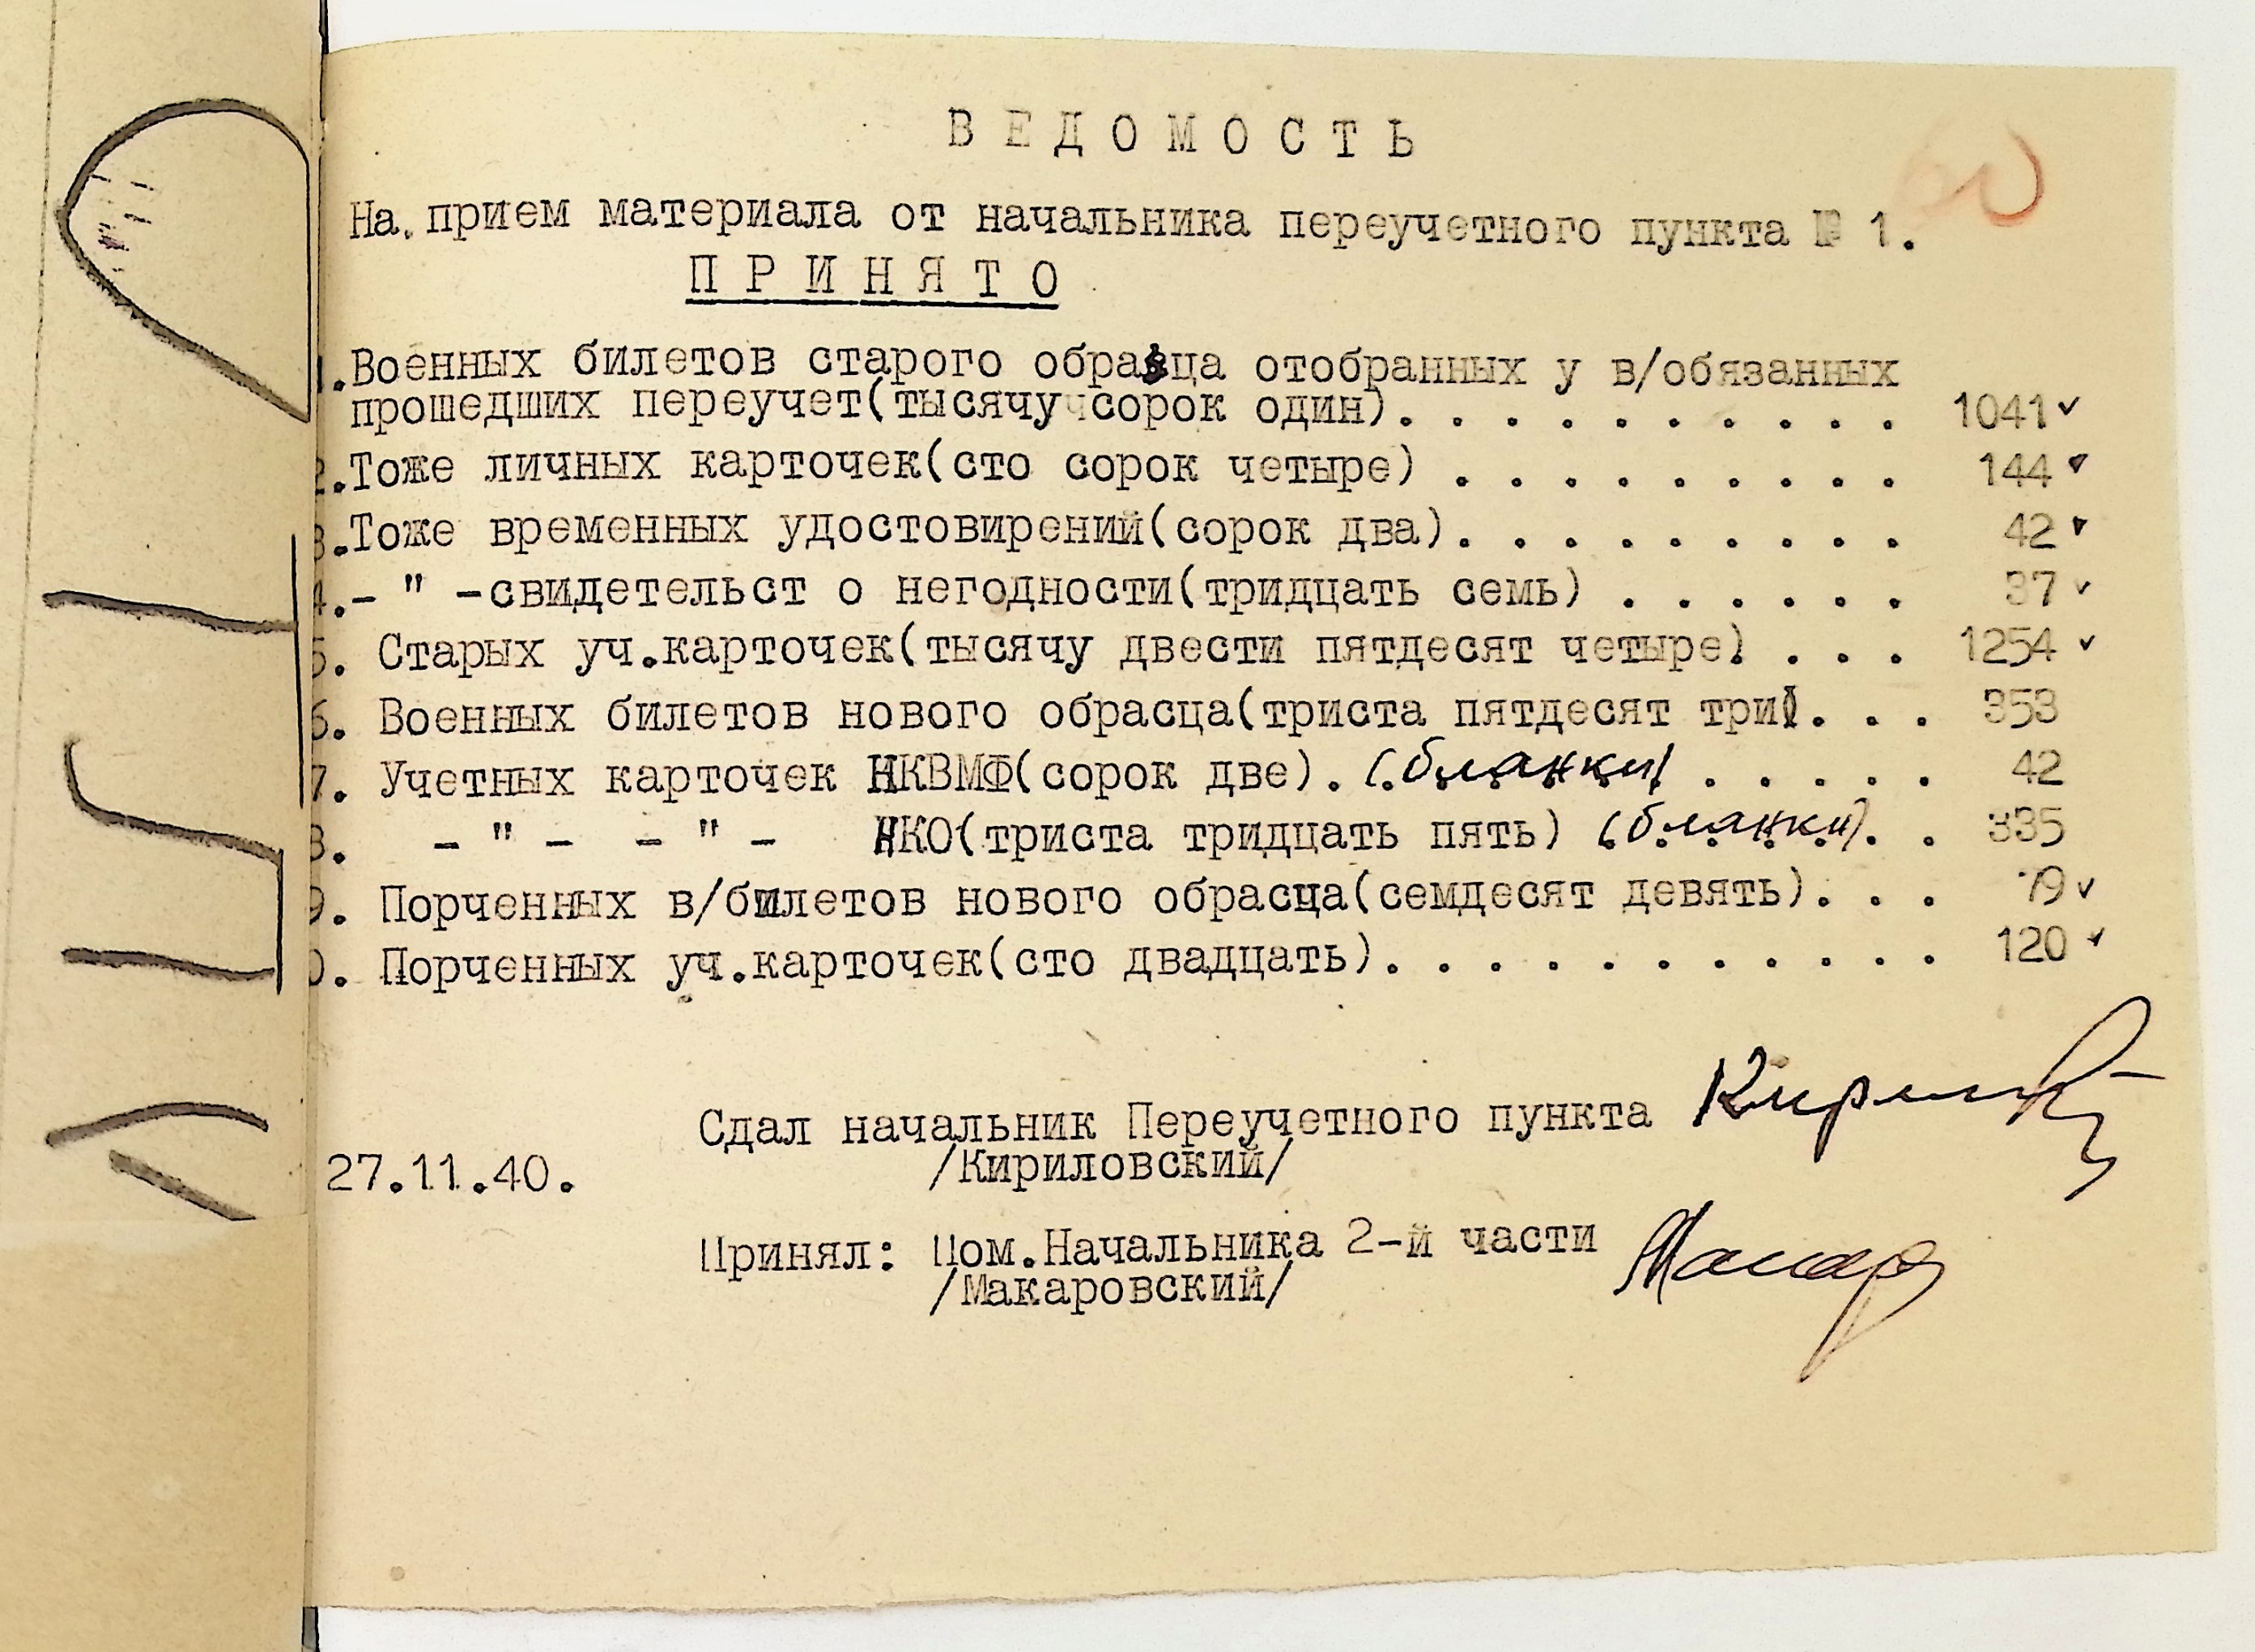 ВЕДОМОСТЬ
60
На прием материала от начальника переучетного пункта № 1.
ПРИНЯТО
1.Военных билетов старого образца отобранных у в/обязанных
прошедших переучет(тысячу сорок один). . . . . . . . . . 1041✓
2.Тоже личных карточек(сто сорок четыре) . . . . . . . . . 144✓
3.Тоже временных удостовирений(сорок два). . . . . . . . . 42✓
4.- " -свидетельст о негодности(тридцать семь) . . . . . . 37✓
5. Старых уч.карточек(тысячу двести пятдесят четыре) . . . 1254✓
6. Военных билетов нового обрасца(триста пятдесят три). . . 353
7. Учетных карточек НКВМФ(сорок две). (бланки) . . . . . 42
8. - " - - " - НКО(триста тридцать пять) (бланки). . 335
9. Порченных в/билетов нового обрасца(семдесят девять). . . 79✓
0. Порченных уч.карточек(сто двадцать). . . . . . . . . . . 120✓
Сдал начальник Переучетного пункта
/Кириловский/
27.11.40.
Принял: Пом.Начальника 2-й части
/Макаровский/